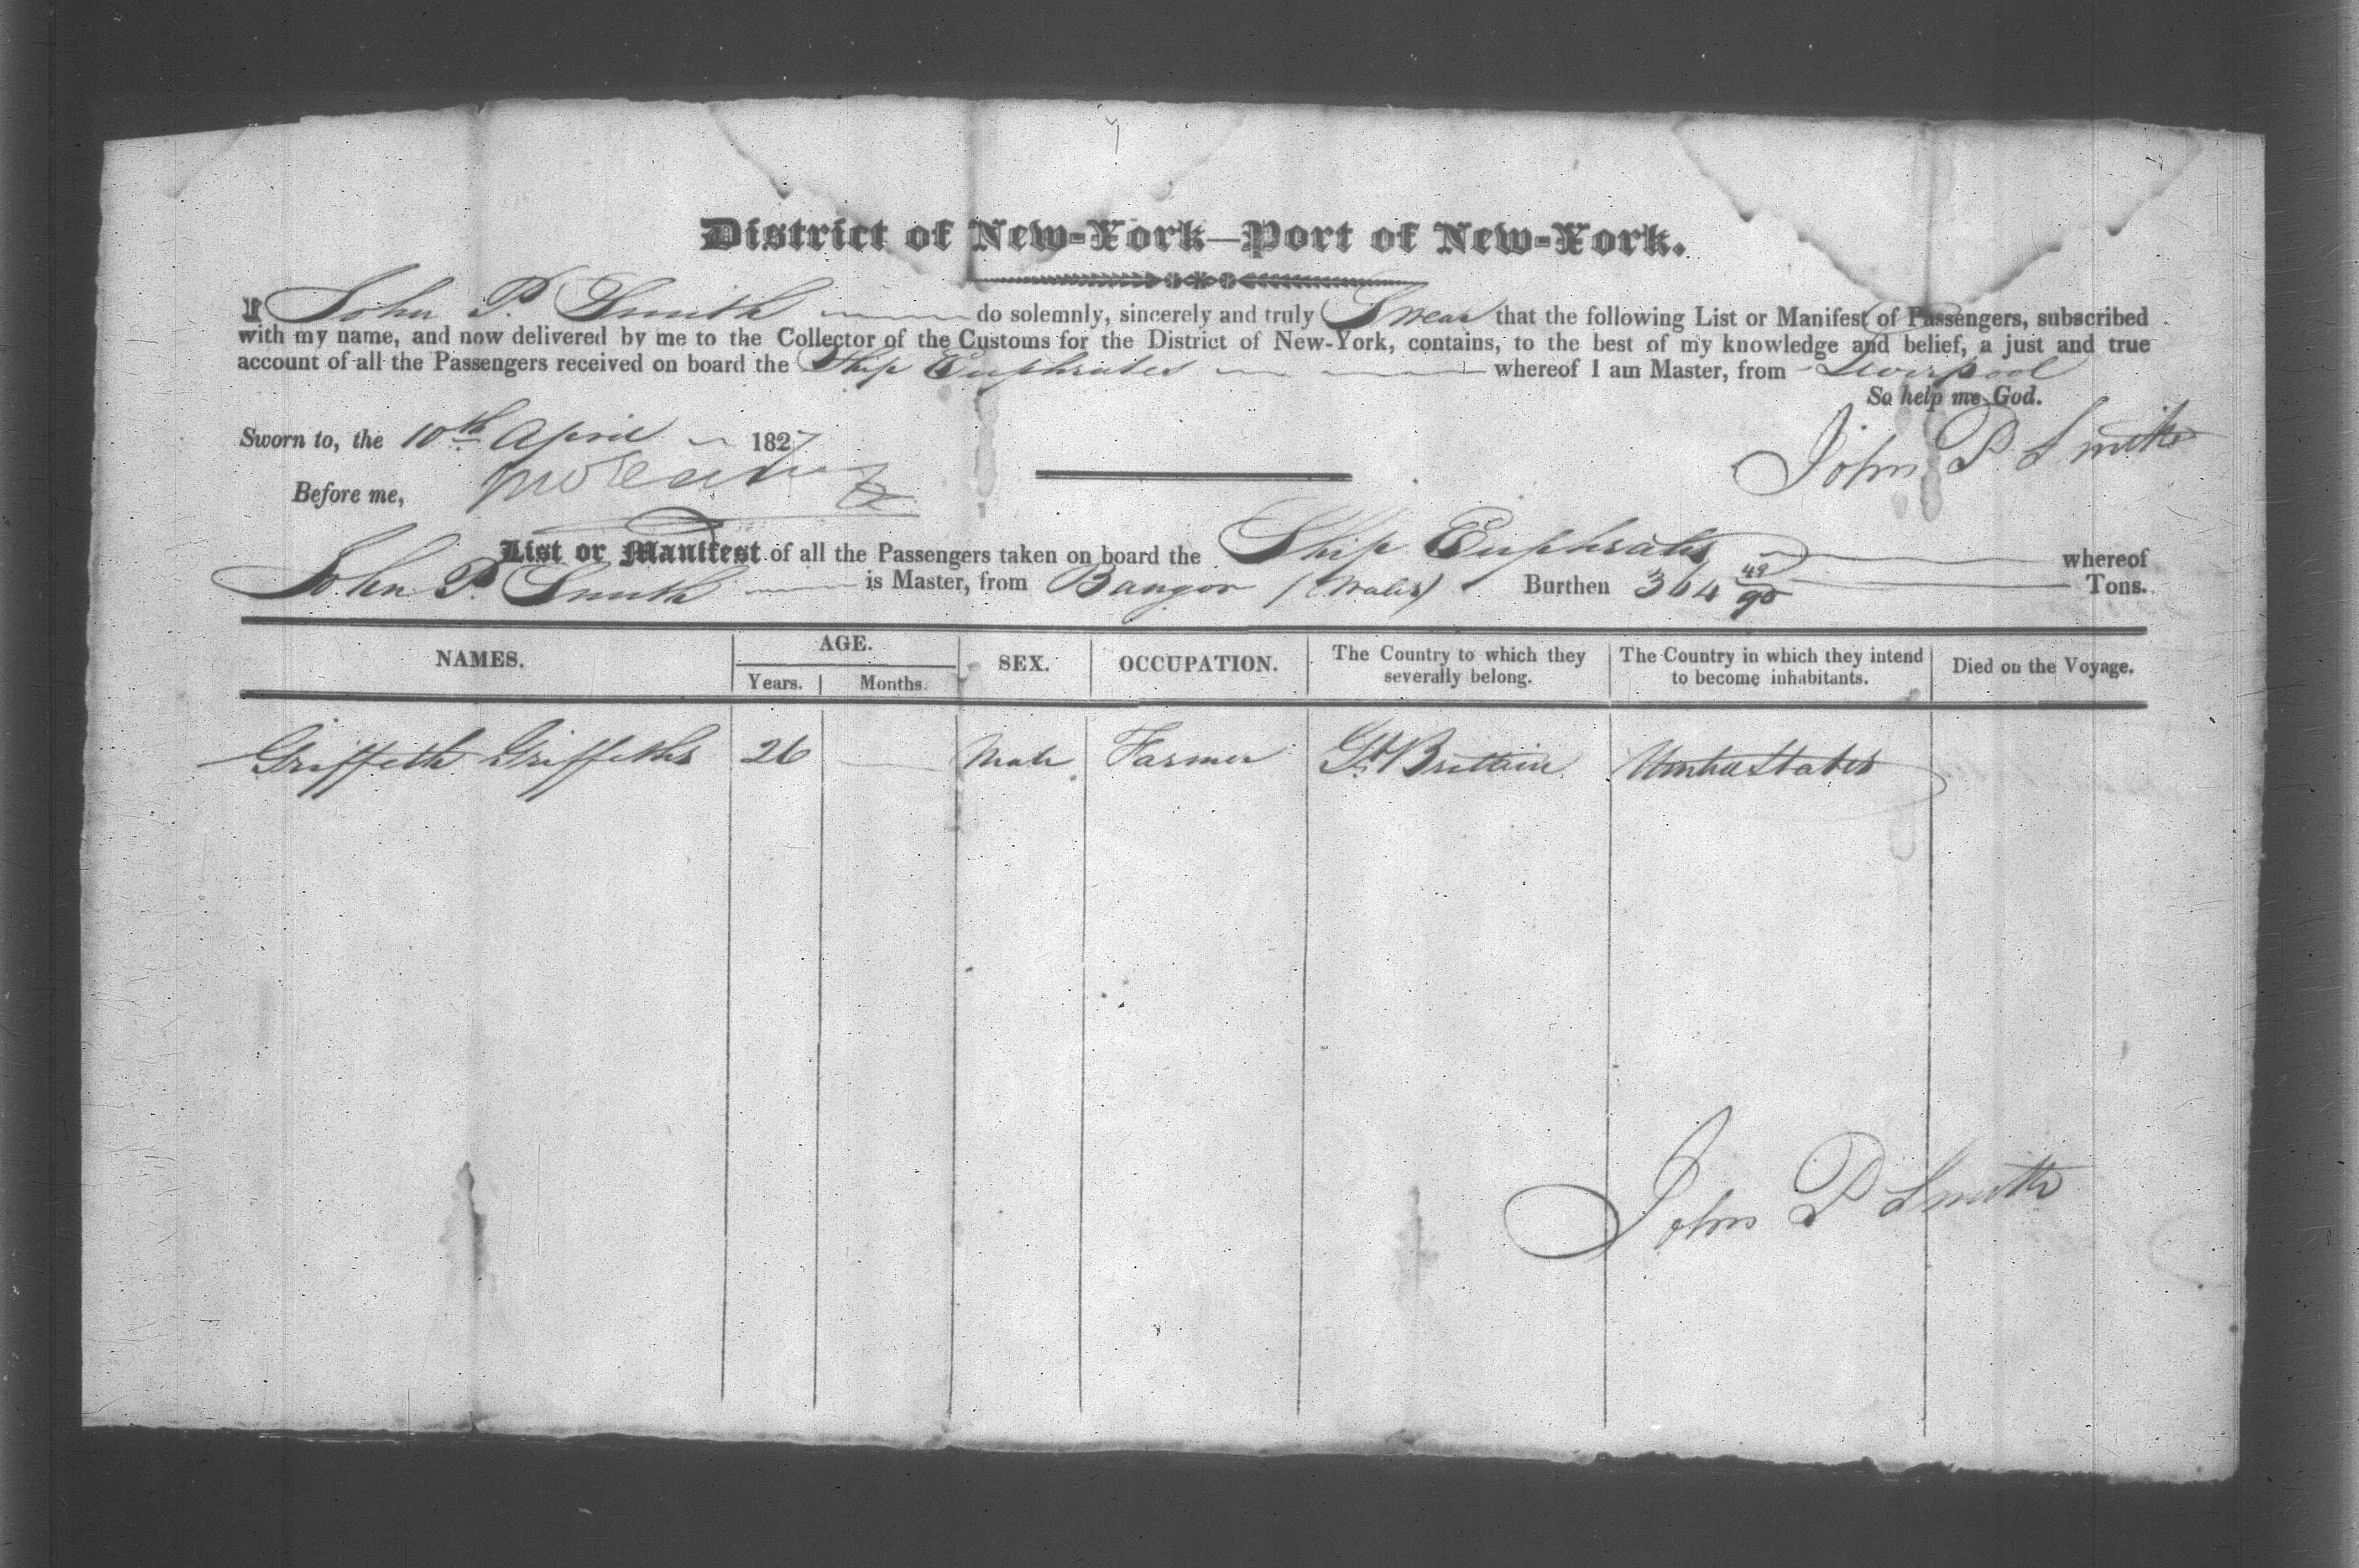 District of New-York—Port of New-York.
I John P. Smith do solemnly, sincerely and truly Swear that the following List or Manifest of Passengers, subscribed
with my name, and now delivered by me to the Collector of the Customs for the District of New-York, contains, to the best of my knowledge and belief, a just and true
account of all the Passengers received on board the Ship Euphrates whereof I am Master, from Liverpool
So help me God.
Sworn to, the 10th April 1827
John P Smith
Before me,
List or Manifest of all the Passengers taken on board the Ship Euphrates whereof
John P. Smith is Master, from Bangor (Wales) Burthen 364 49/95 Tons.
NAMES. AGE. SEX. OCCUPATION. The Country to which they severally belong. The Country in which they intend to become inhabitants. Died on the Voyage.
Years. Months.
Griffeth Griffeths 26 — Male Farmer Gt Brittain United States
John P Smith